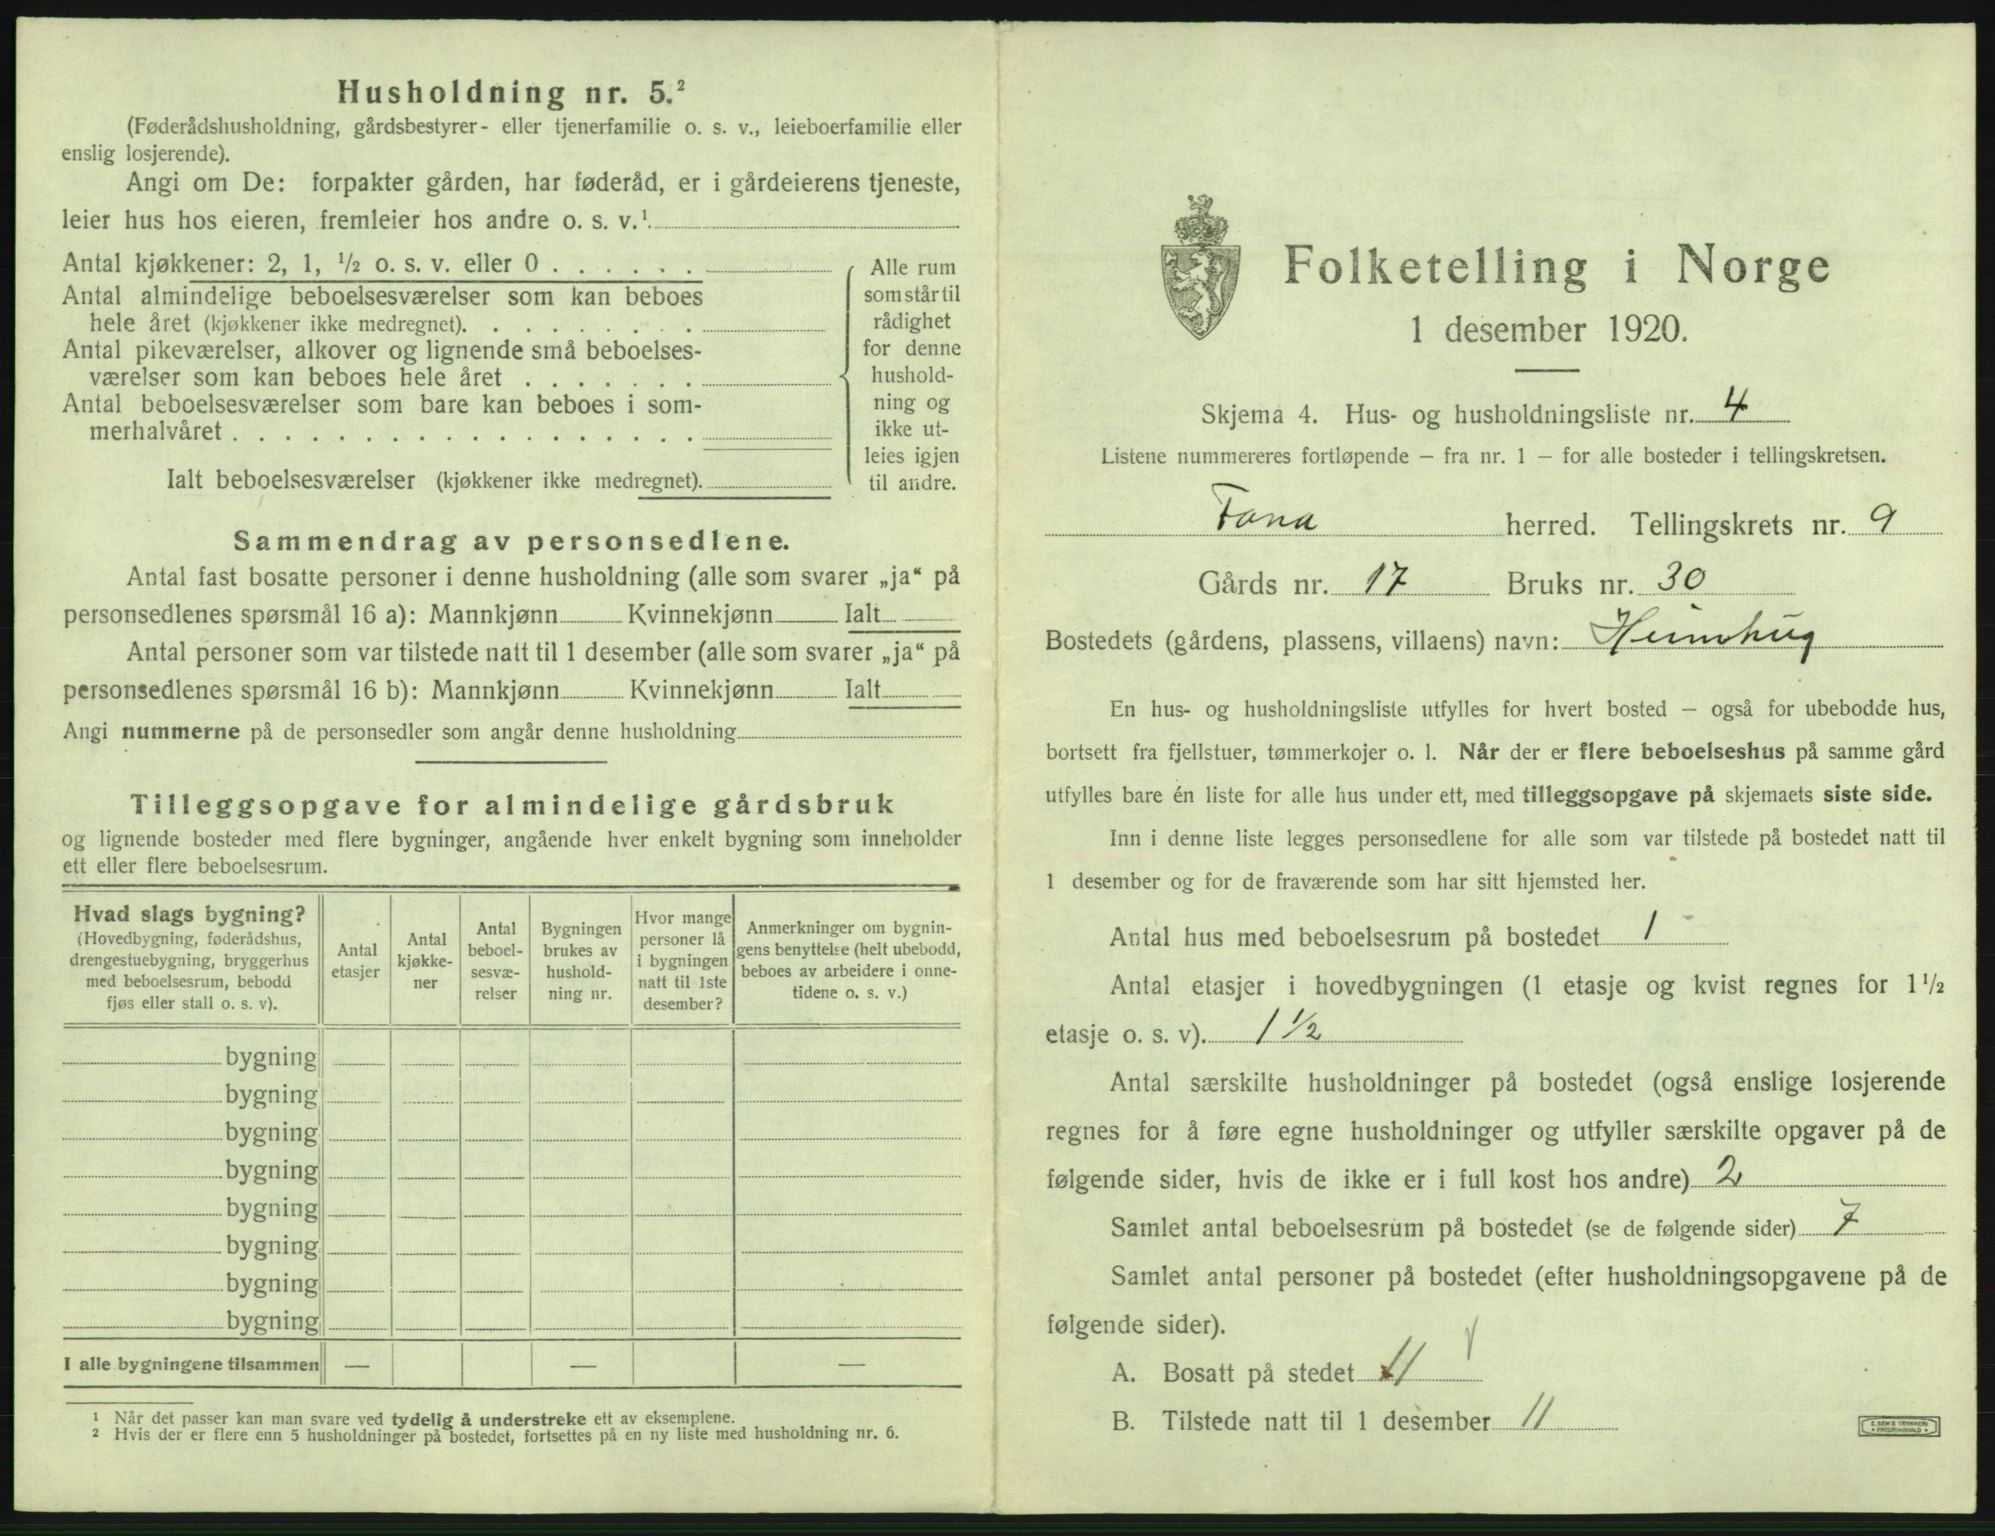 Husholdning nr. 5.²
(Føderådshusholdning, gårdsbestyrer- eller tjenerfamilie o. s. v., leieboerfamilie eller
enslig losjerende).
Angi om De: forpakter gården, har føderåd, er i gårdeierens tjeneste,
leier hus hos eieren, fremleier hos andre o. s. v.¹
Antal kjøkkener: 2, 1, ½ o. s. v. eller 0 . . . . . .
Antal almindelige beboelsesværelser som kan beboes
hele året (kjøkkener ikke medregnet). . . . . . . . .
Antal pikeværelser, alkover og lignende små beboelses-
værelser som kan beboes hele året . . . . . . .
Antal beboelsesværelser som bare kan beboes i som-
merhalvåret . . . . . . . . . . . . . . . . . .
Ialt beboelsesværelser (kjøkkener ikke medregnet).
Alle rum
som står til
rådighet
for denne
hushold-
ning og
ikke ut-
leies igjen
til andre.
Sammendrag av personsedlene.
Antal fast bosatte personer i denne husholdning (alle som svarer „ja“ på
personsedlenes spørsmål 16 a): Mannkjønn Kvinnekjønn Ialt
Antal personer som var tilstede natt til 1 desember (alle som svarer „ja“ på
personsedlenes spørsmål 16 b): Mannkjønn Kvinnekjønn Ialt
Angi nummerne på de personsedler som angår denne husholdning
Tilleggsopgave for almindelige gårdsbruk
og lignende bosteder med flere bygninger, angående hver enkelt bygning som inneholder
ett eller flere beboelsesrum.
Hvad slags bygning?
(Hovedbygning, føderådshus,
drengestuebygning, bryggerhus
med beboelsesrum, bebodd
fjøs eller stall o. s. v).
Antal
etasjer
Antal
kjøkke-
ner
Antal
beboel-
sesvæ-
relser
Bygningen
brukes av
hushold-
ning nr.
Hvor mange
personer lå
i bygningen
natt til 1ste
desember?
Anmerkninger om bygnin-
gens benyttelse (helt ubebodd,
beboes av arbeidere i onne-
tidene o. s. v.)
bygning
bygning
bygning
bygning
bygning
bygning
bygning
bygning
I alle bygningene tilsammen — — —
¹ Når det passer kan man svare ved tydelig å understreke ett av eksemplene.
² Hvis der er flere enn 5 husholdninger på bostedet, fortsettes på en ny liste med husholdning nr. 6.
Folketelling i Norge
1 desember 1920.
Skjema 4. Hus- og husholdningsliste nr. 4
Listene nummereres fortløpende — fra nr. 1 — for alle bosteder i tellingskretsen.
Fana herred. Tellingskrets nr. 9
Gårds nr. 17 Bruks nr. 30
Bostedets (gårdens, plassens, villaens) navn: Heimhug
En hus- og husholdningsliste utfylles for hvert bosted — også for ubebodde hus,
bortsett fra fjellstuer, tømmerkojer o. l. Når der er flere beboelseshus på samme gård
utfylles bare én liste for alle hus under ett, med tilleggsopgave på skjemaets siste side.
Inn i denne liste legges personsedlene for alle som var tilstede på bostedet natt til
1 desember og for de fraværende som har sitt hjemsted her.
Antal hus med beboelsesrum på bostedet 1
Antal etasjer i hovedbygningen (1 etasje og kvist regnes for 1½
etasje o. s. v). 1½
Antal særskilte husholdninger på bostedet (også enslige losjerende
regnes for å føre egne husholdninger og utfyller særskilte opgaver på de
følgende sider, hvis de ikke er i full kost hos andre) 2
Samlet antal beboelsesrum på bostedet (se de følgende sider) 7
Samlet antal personer på bostedet (efter husholdningsopgavene på de
følgende sider).
A. Bosatt på stedet 11
B. Tilstede natt til 1 desember 11
E. SEM'S TRYKKERI
FREDRIKSHALD